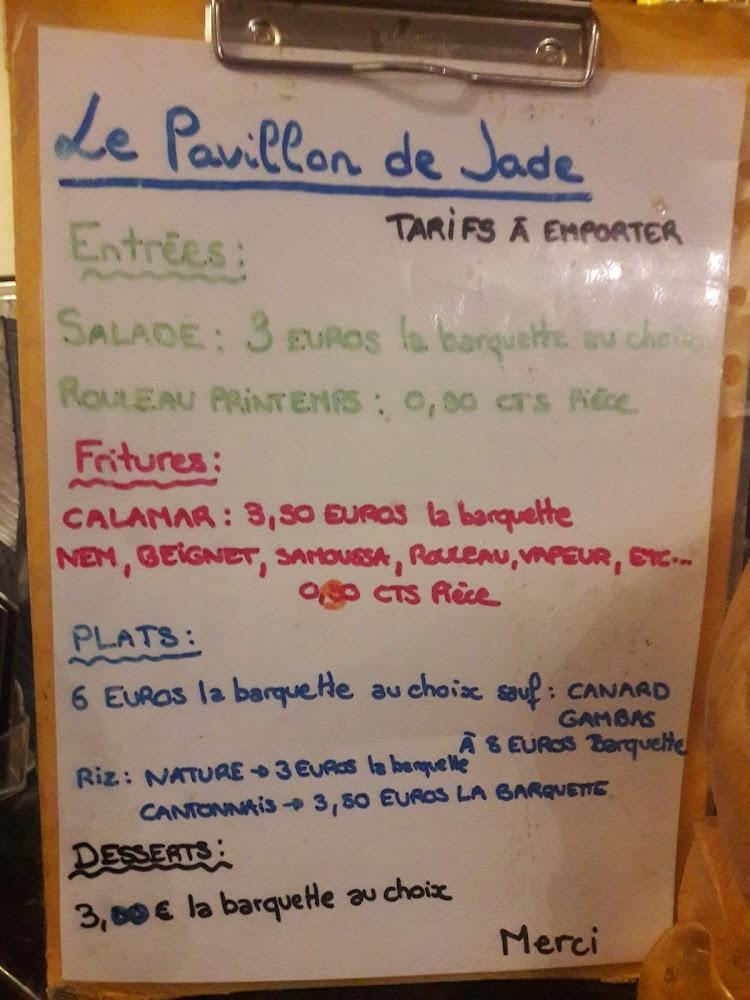 Le Pavillon de Jade
TARIFS À EMPORTER
Entrées:
SALADE: 3 EUROS la barquette au choix
ROULEAU PRINTEMPS: 0,90 CTS Pièce
Fritures:
CALAMAR: 3,50 EUROS la barquette
NEM, BEIGNET, SAMOUSSA, ROULEAU, VAPEUR, ETC...
0,90 CTS Pièce
PLATS:
6 EUROS la barquette au choix sauf: CANARD
GAMBAS
À 8 EUROS Barquette
Riz: NATURE → 3 EUROS la barquette
CANTONNAIS → 3,50 EUROS LA BARQUETTE
DESSERTS:
3,00 € la barquette au choix
Merci